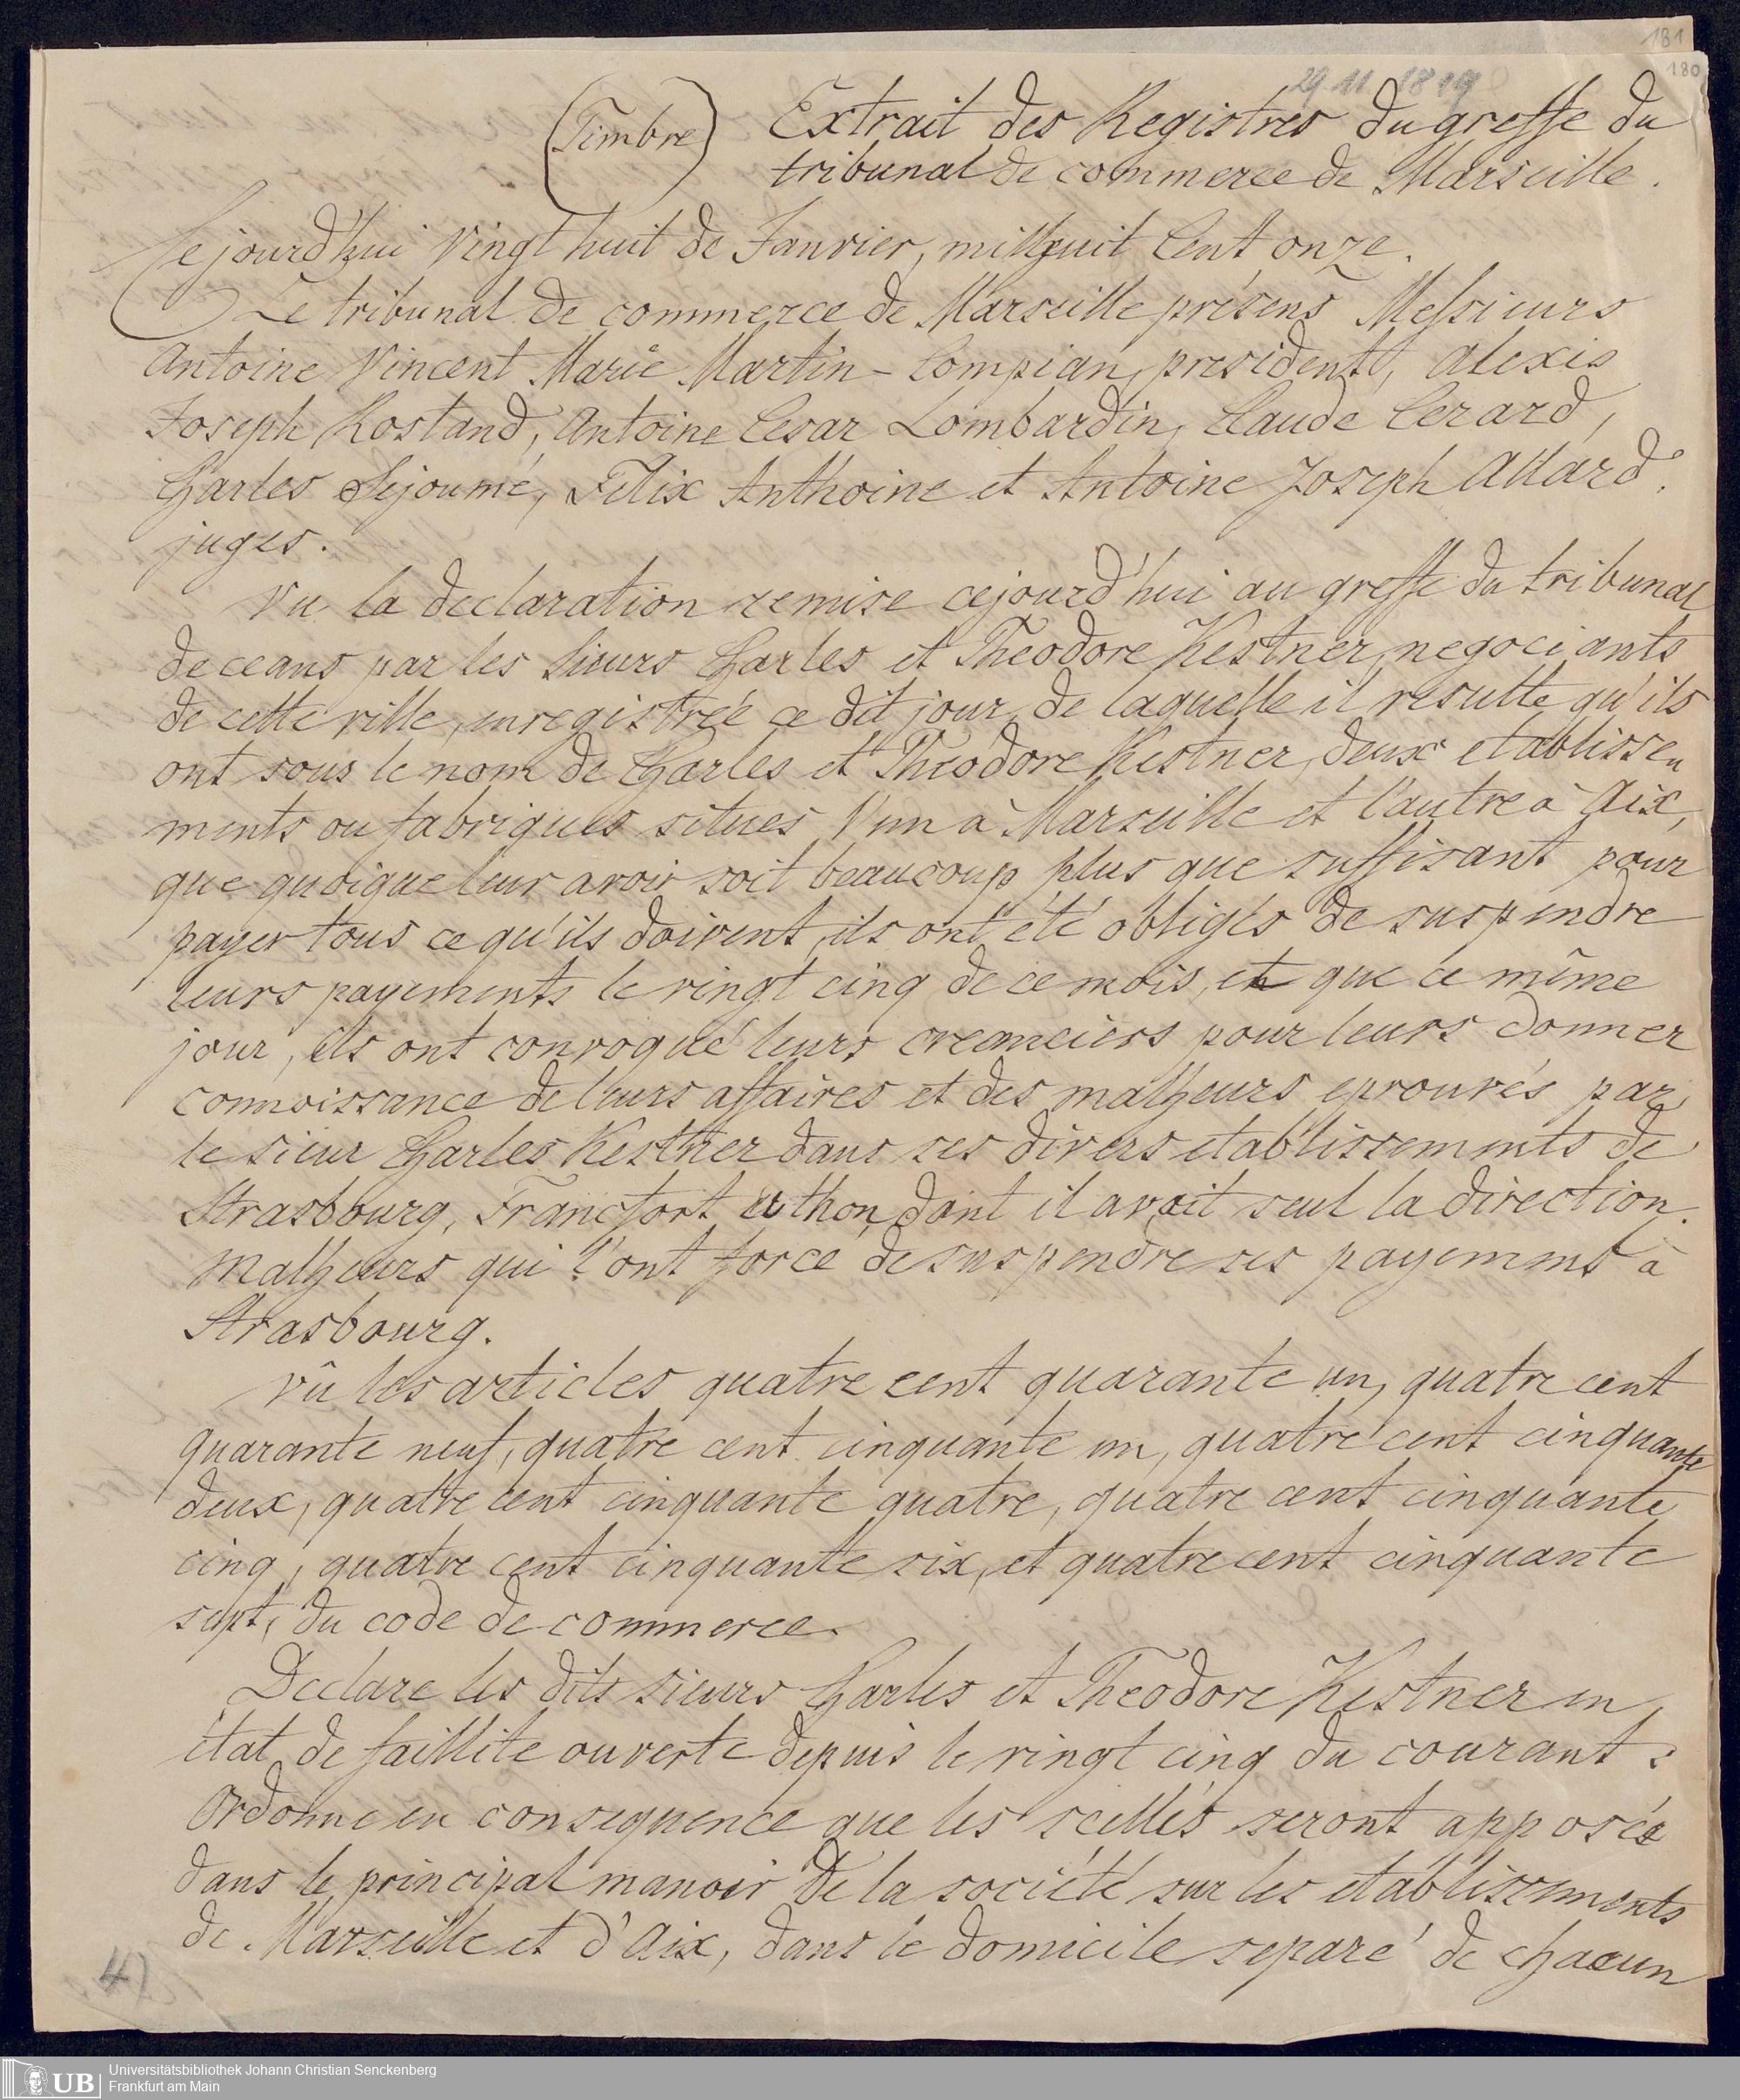 181
180
29 11 18
(Timbre) Extrait des Registres du greffe du
tribunal de commerce de Marseille.
Cejourd'hui Vingt huit de Janvier, mil huit Cent onze.
Le tribunal de commerce de Marseille présens Messieurs
Antoine Vincent Marie Martin-Compian, president, Alexis
Joseph Rostand, Antoine Cesar Lombardin, Claude Cerard,
Charles Sejourné, Felix Anthoine et Antoine Joseph Allard.
juges.
Vu la declaration remise cejourd'hui au greffe du tribunal
de ceans par les Sieurs Charles et Theodore Kestner, negociants
de cette ville, enregistrée ce dit jour, de laquelle il resulte qu'ils
ont sous le nom de Charles et Théodore Kestner, deux etablisse
ments ou fabriques situes l'un à Marseille et l'autre à Aix,
que quoique leur avoir soit beaucoup plus que suffisant pour
payer tous ce qu'ils doivent, ils ont été obligés de suspendre
leurs payements le vingt cinq de ce mois, et que ce même
jour, ils ont convoqué leurs creanciers pour leurs donner
connoissance de leurs affaires et des malheurs eprouvés par
le sieur Charles Kestner dans ses divers etablissements de
Strasbourg, Francfort et thon, dont il avoit seul la direction.
malheurs qui l'ont force de suspendre ses payements à
Strasbourg.
vû les articles quatre cent quarante un, quatre cent
quarante neuf, quatre cent cinquante un, quatre cent cinquante
deux, quatre cent cinquante quatre, quatre cent cinquante
cinq, quatre cent cinquante six, et quatre cent cinquante
sept, du code de commerce.
Declare les dits sieurs Charles et Theodore Kestner en
état de faillite ouverte depuis le vingt cinq du courant:
Ordonne en consequence que les scellés seront apposés
dans le principal manoir de la société sur les etablissements
de Marseille et d'Aix, dans le domicile separé de chacun
47
UB Universitätsbibliothek Johann Christian Senckenberg
Frankfurt am Main